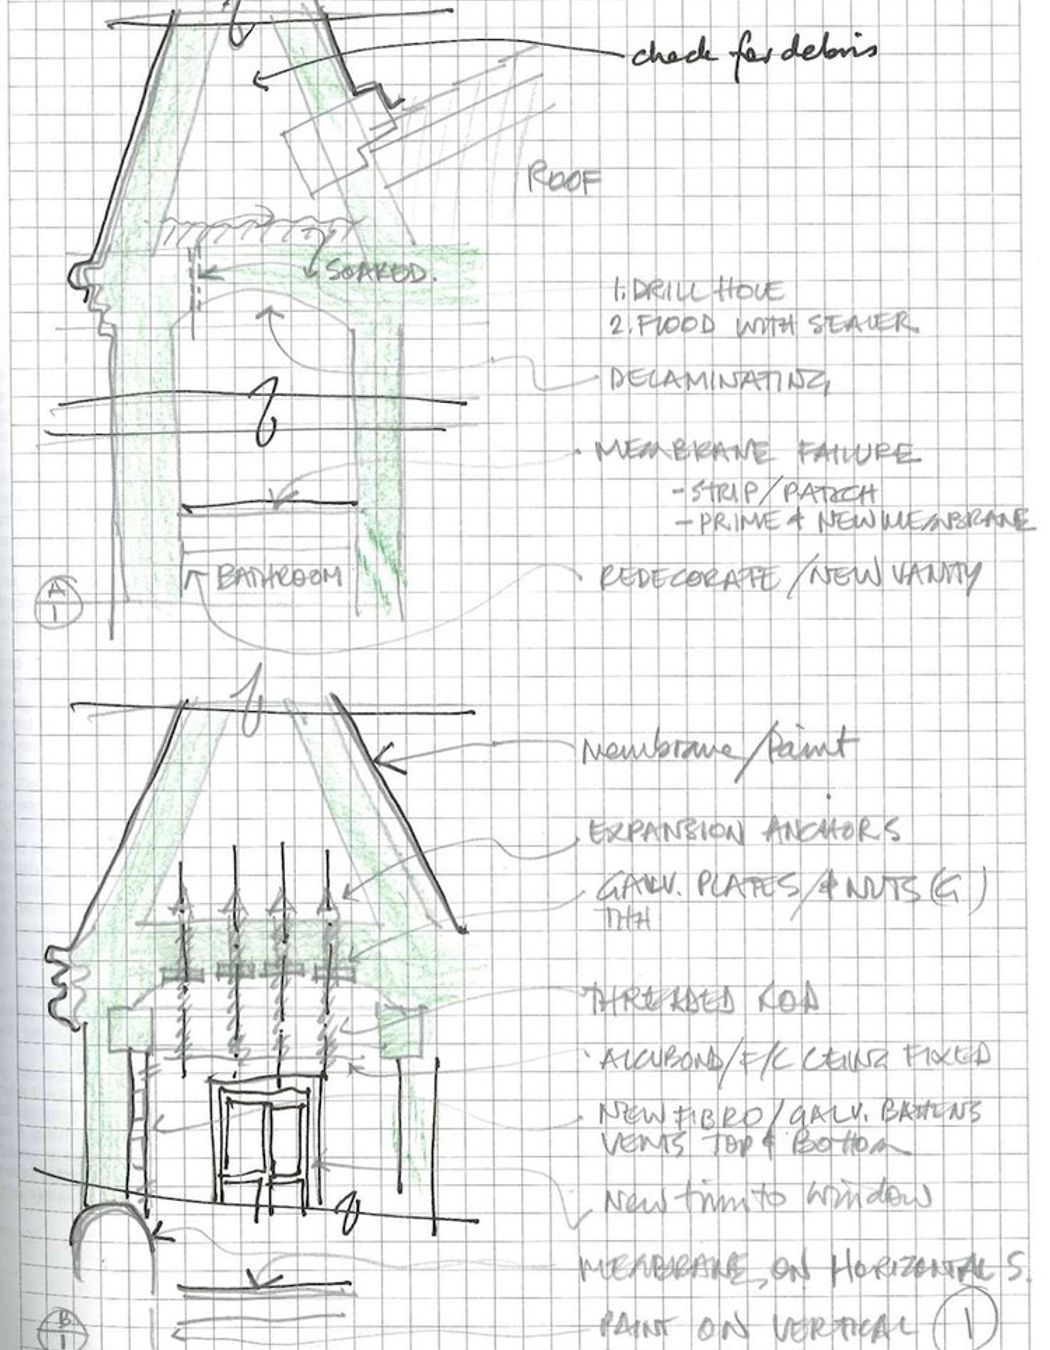 check for debris
ROOF
SOAKED.
1. DRILL HOLE
2. FLOOD WITH SEALER
DELAMINATING
MEMBRANE FAILURE
- STRIP/PATCH
- PRIME & NEW MEMBRANE
BATHROOM
REDECORATE/NEW VANITY
A
1
Membrane/Paint
EXPANSION ANCHORS
GALV. PLATES/& NUTS (G)
THREADED ROD
ALCUBOND/F/C CEING FIXED
NEW FIBRO/GALV. BATTENS
VENTS TOP & BOTTOM
New trim to window
MEMBRANE ON HORIZONTALS.
PAINT ON VERTICAL
1
B
1